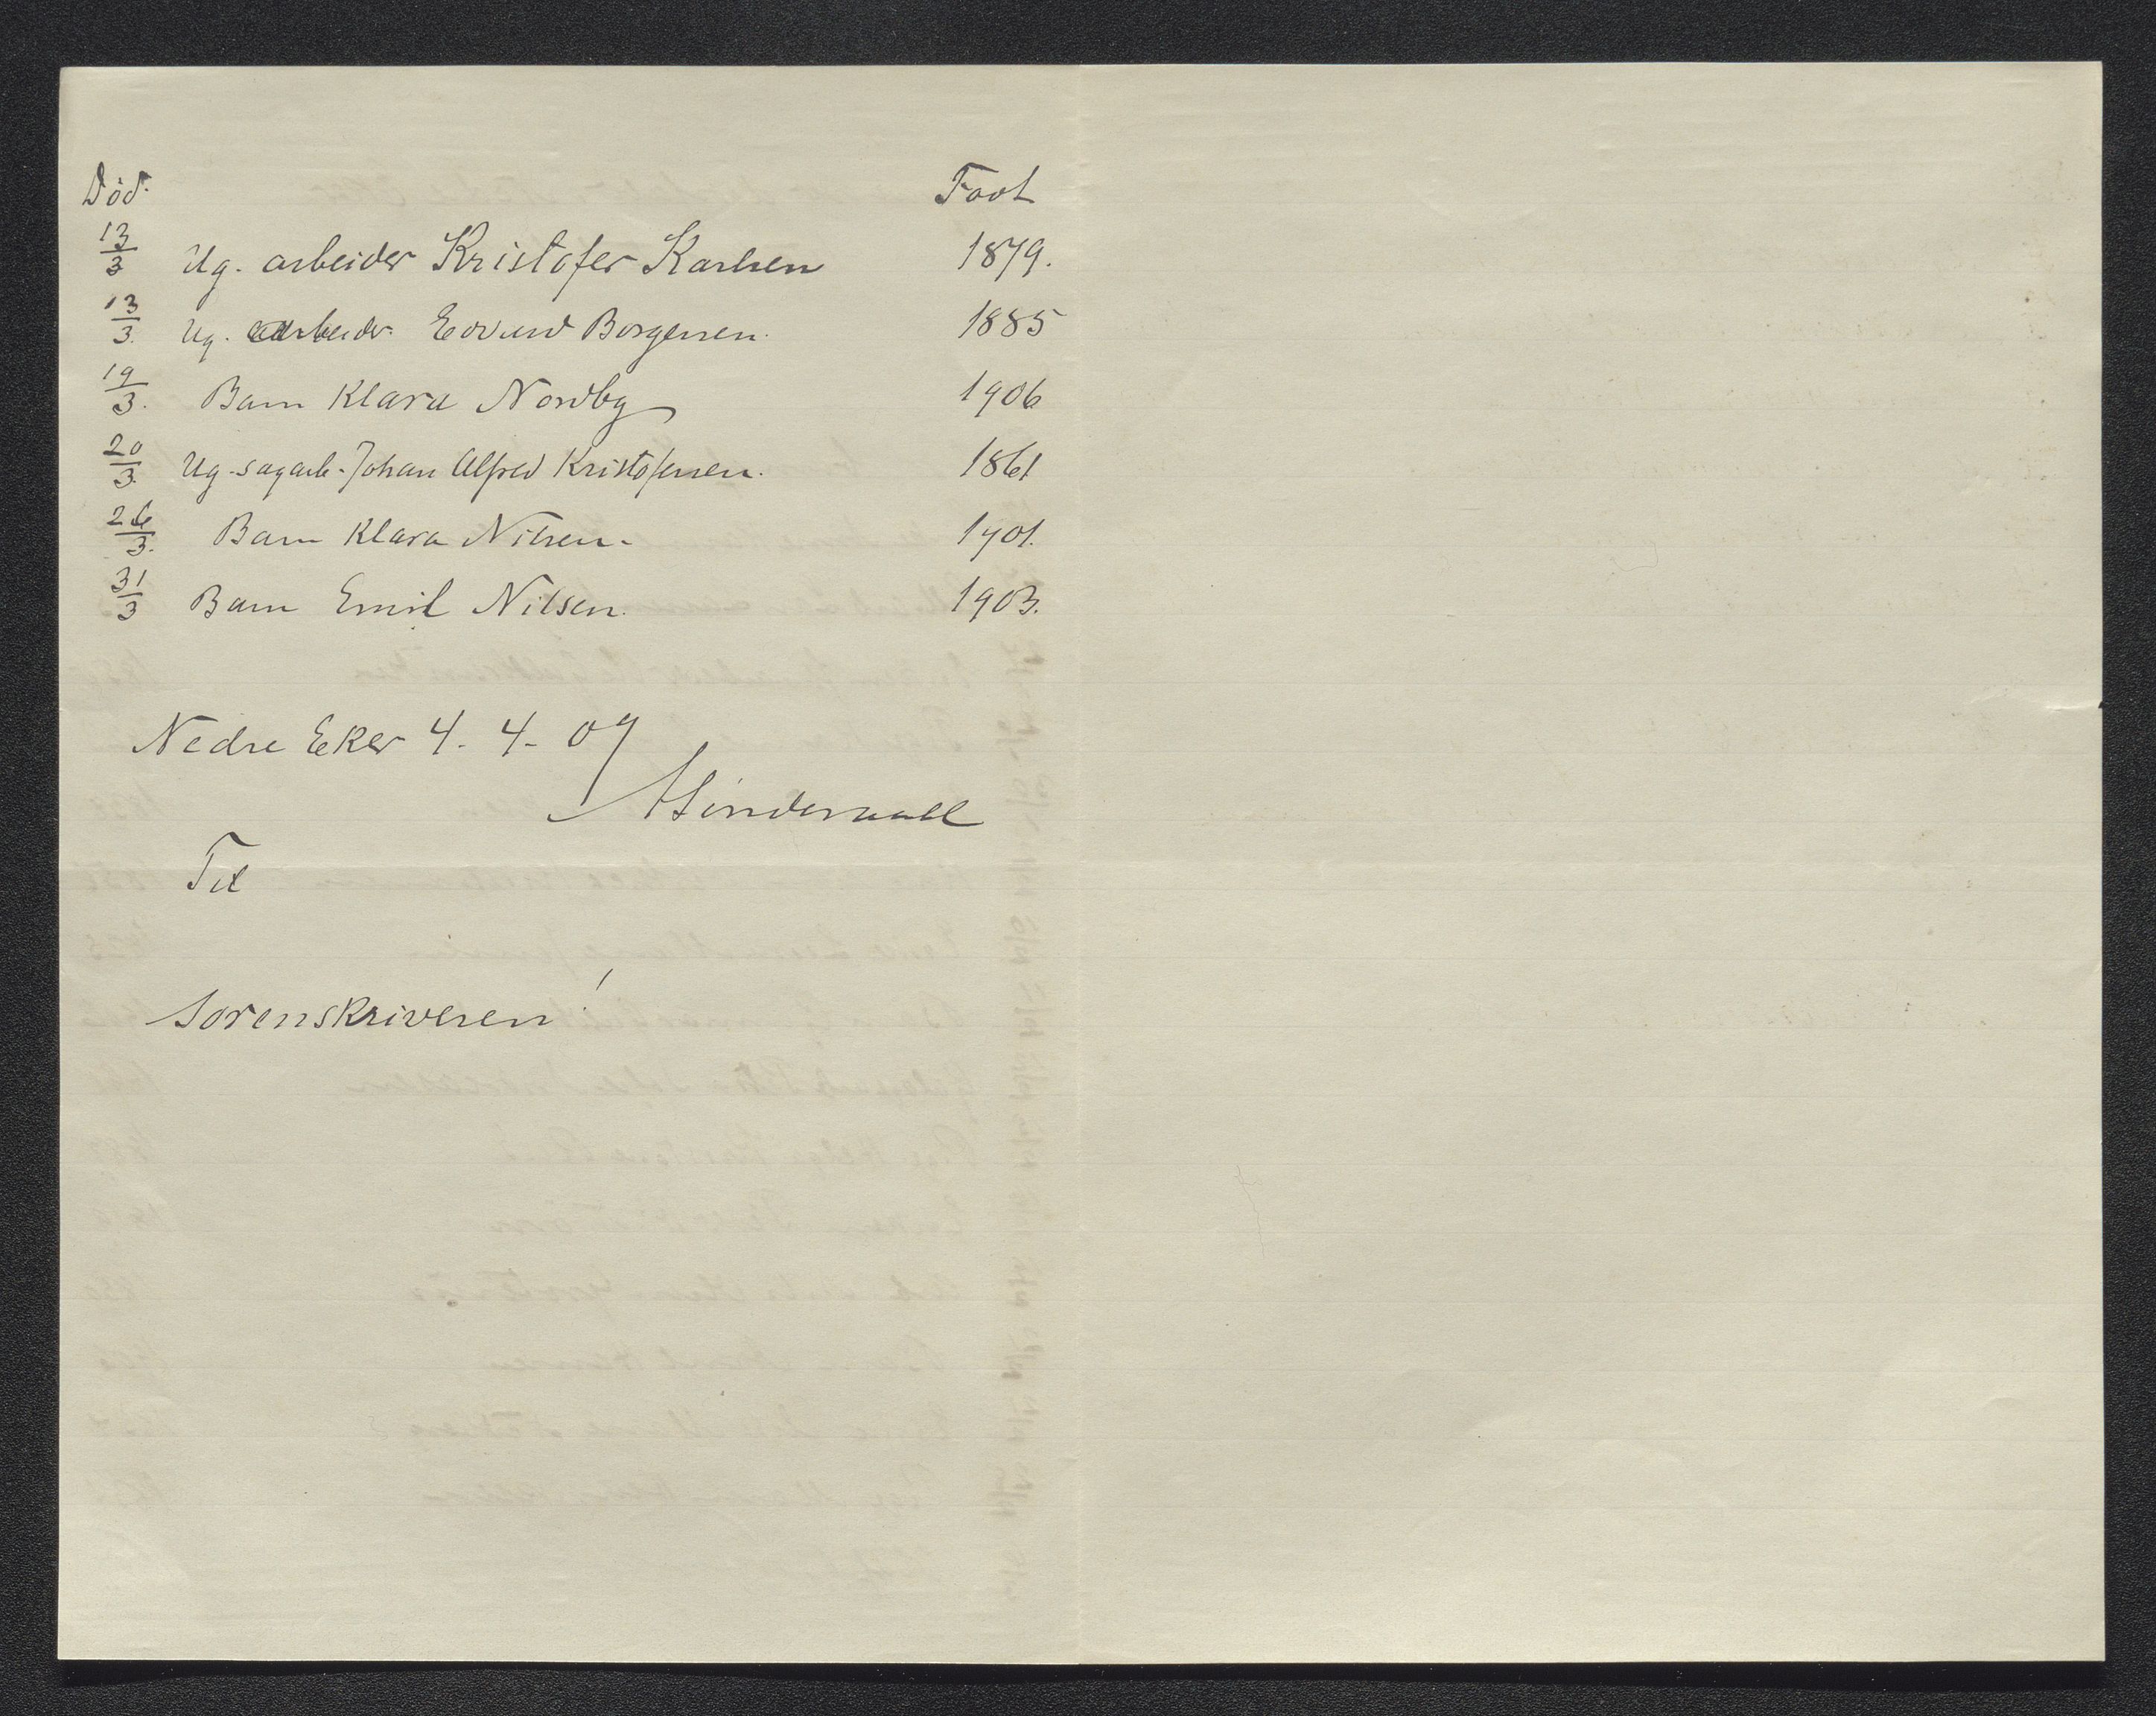 Død. Født
13/3 Ug. arbeider Kristofer Karlsen 1879.
13/3. Ug. arbeider Edvard Borgersen. 1885
19/3. Barn Klara Nordby 1906
20/3. Ug. sagarb. Johan Alfred Kristofersen. 1861
26/3. Barn Klara Nilsen. 1901.
31/3 Barn Emil Nilsen. 1903.
Nedre Eker 4. 4. 09
Til
Sorenskriveren!